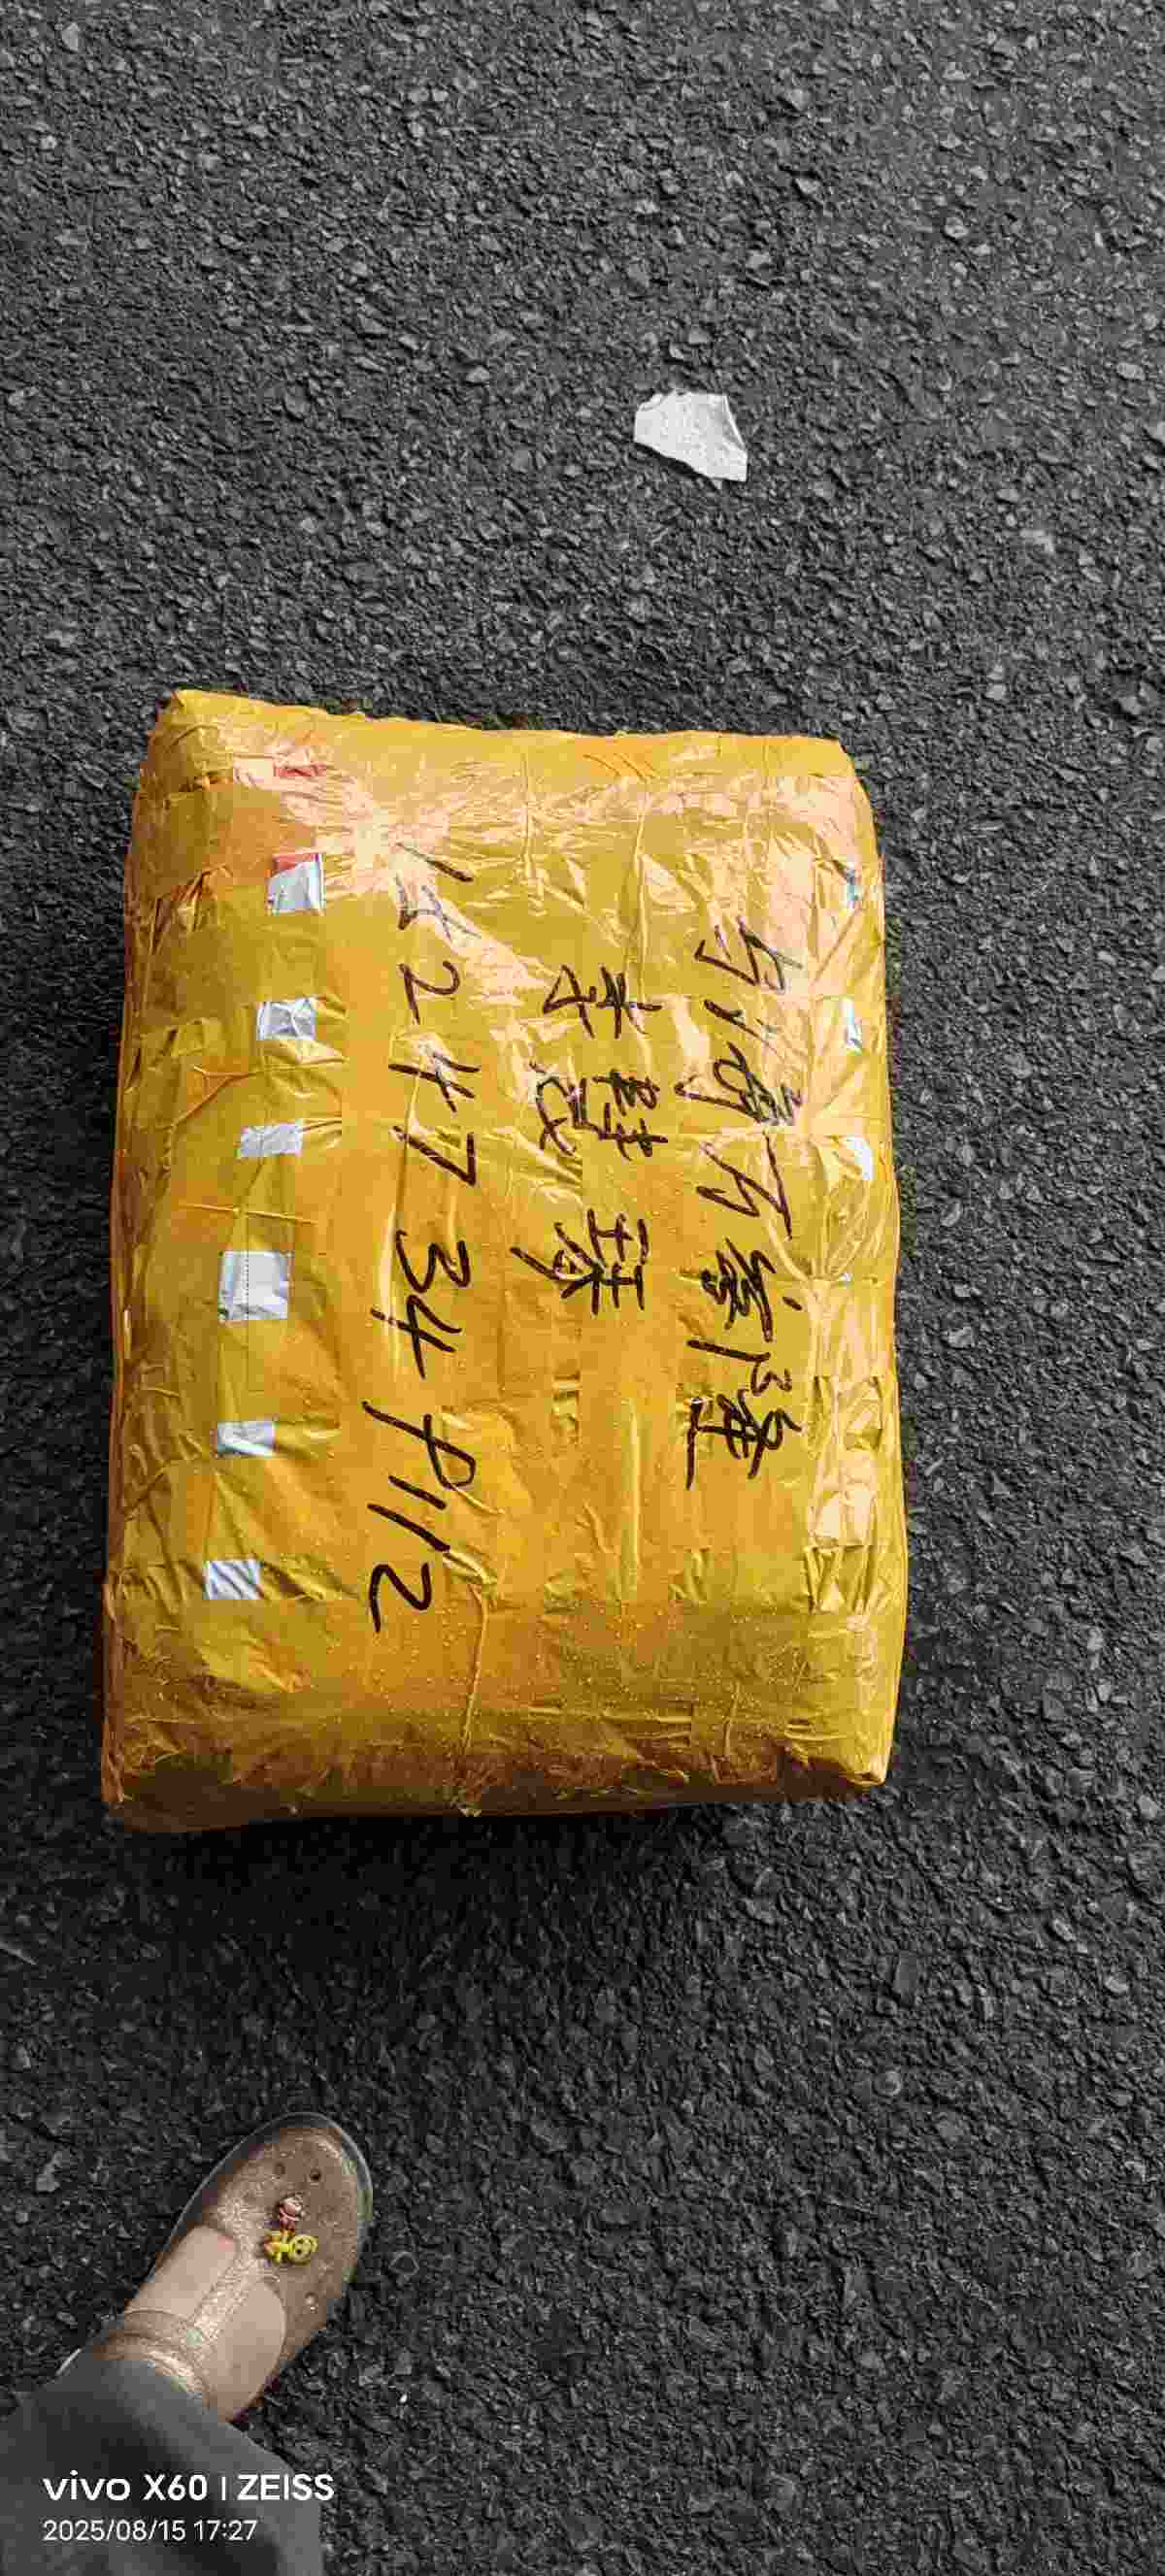 万客隆
李 琴
15247349112
vivo X60 | ZEISS
2025/08/15 17:27